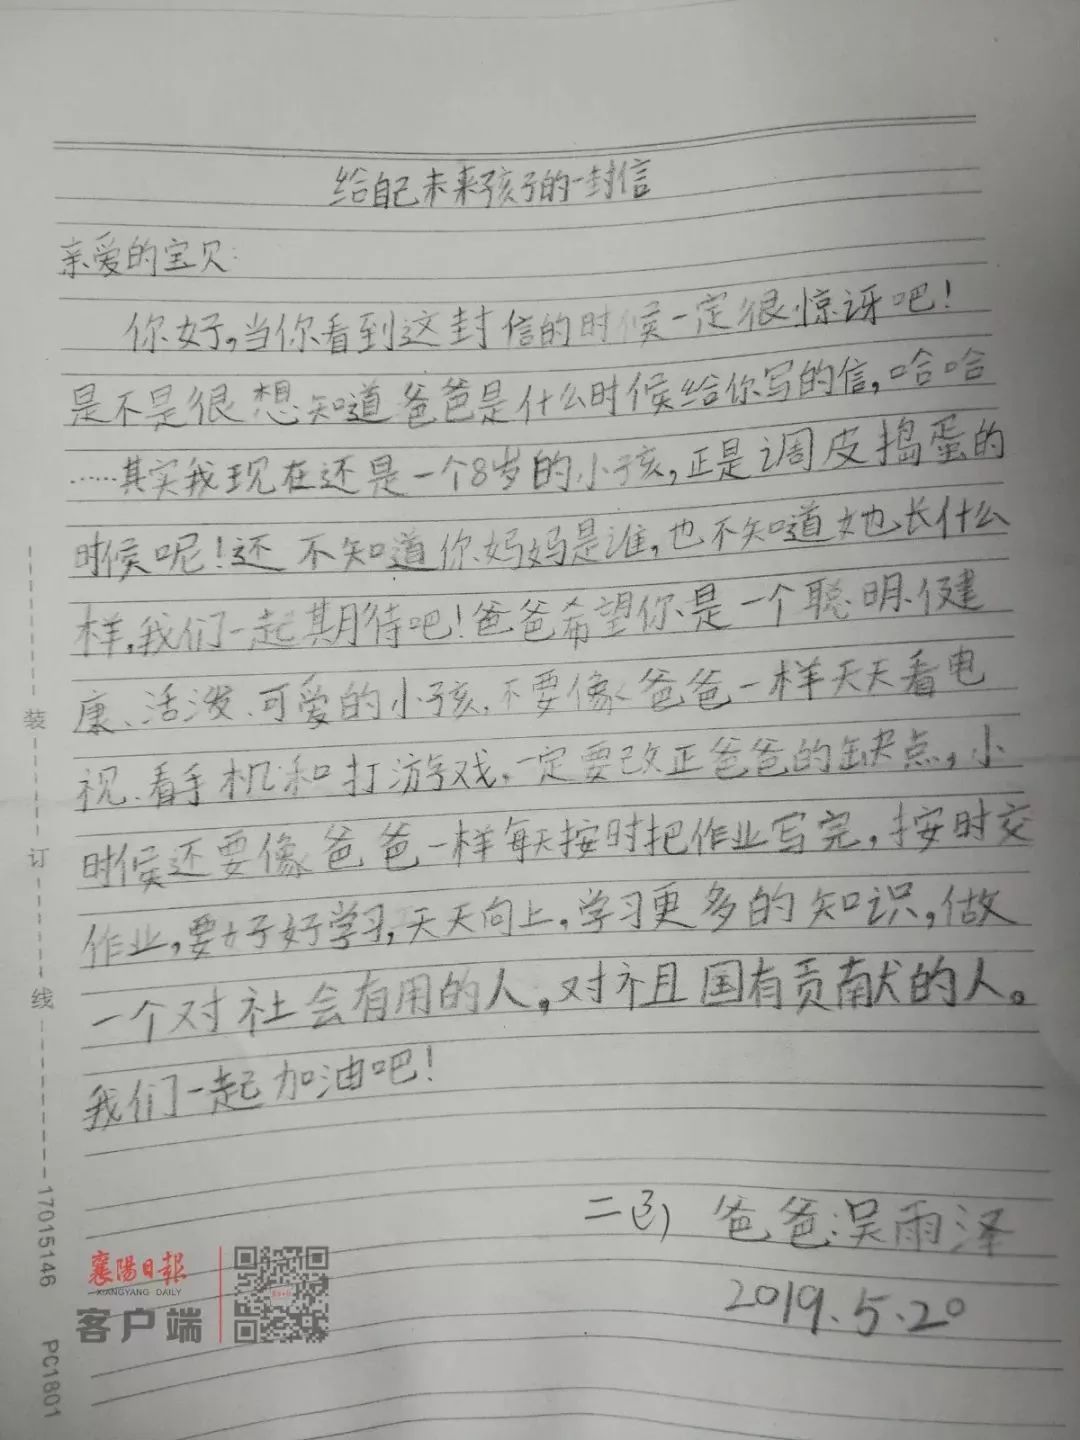 给自己未来孩子的一封信
亲爱的宝贝:
你好,当你看到这封信的时候一定很惊讶吧!
是不是很想知道爸爸是什么时候给你写的信,哈哈
……其实我现在还是一个8岁的小孩,正是调皮捣蛋的
时候呢!还不知道你妈妈是谁,也不知道她长什么
样,我们一起期待吧!爸爸希望你是一个聪明、健
康、活泼、可爱的小孩,不要像爸爸一样天天看电
视、看手机和打游戏,一定要改正爸爸的缺点,小
时候还要像爸爸一样每天按时把作业写完,按时交
作业,要好好学习,天天向上,学习更多的知识,做
一个对社会有用的人,对祖国有贡献的人。
我们一起加油吧!
爸爸:吴雨泽
2019.5.20
装
订
线
17015146 PC1801
襄陽日報
XIANGYANG DAILY
客户端